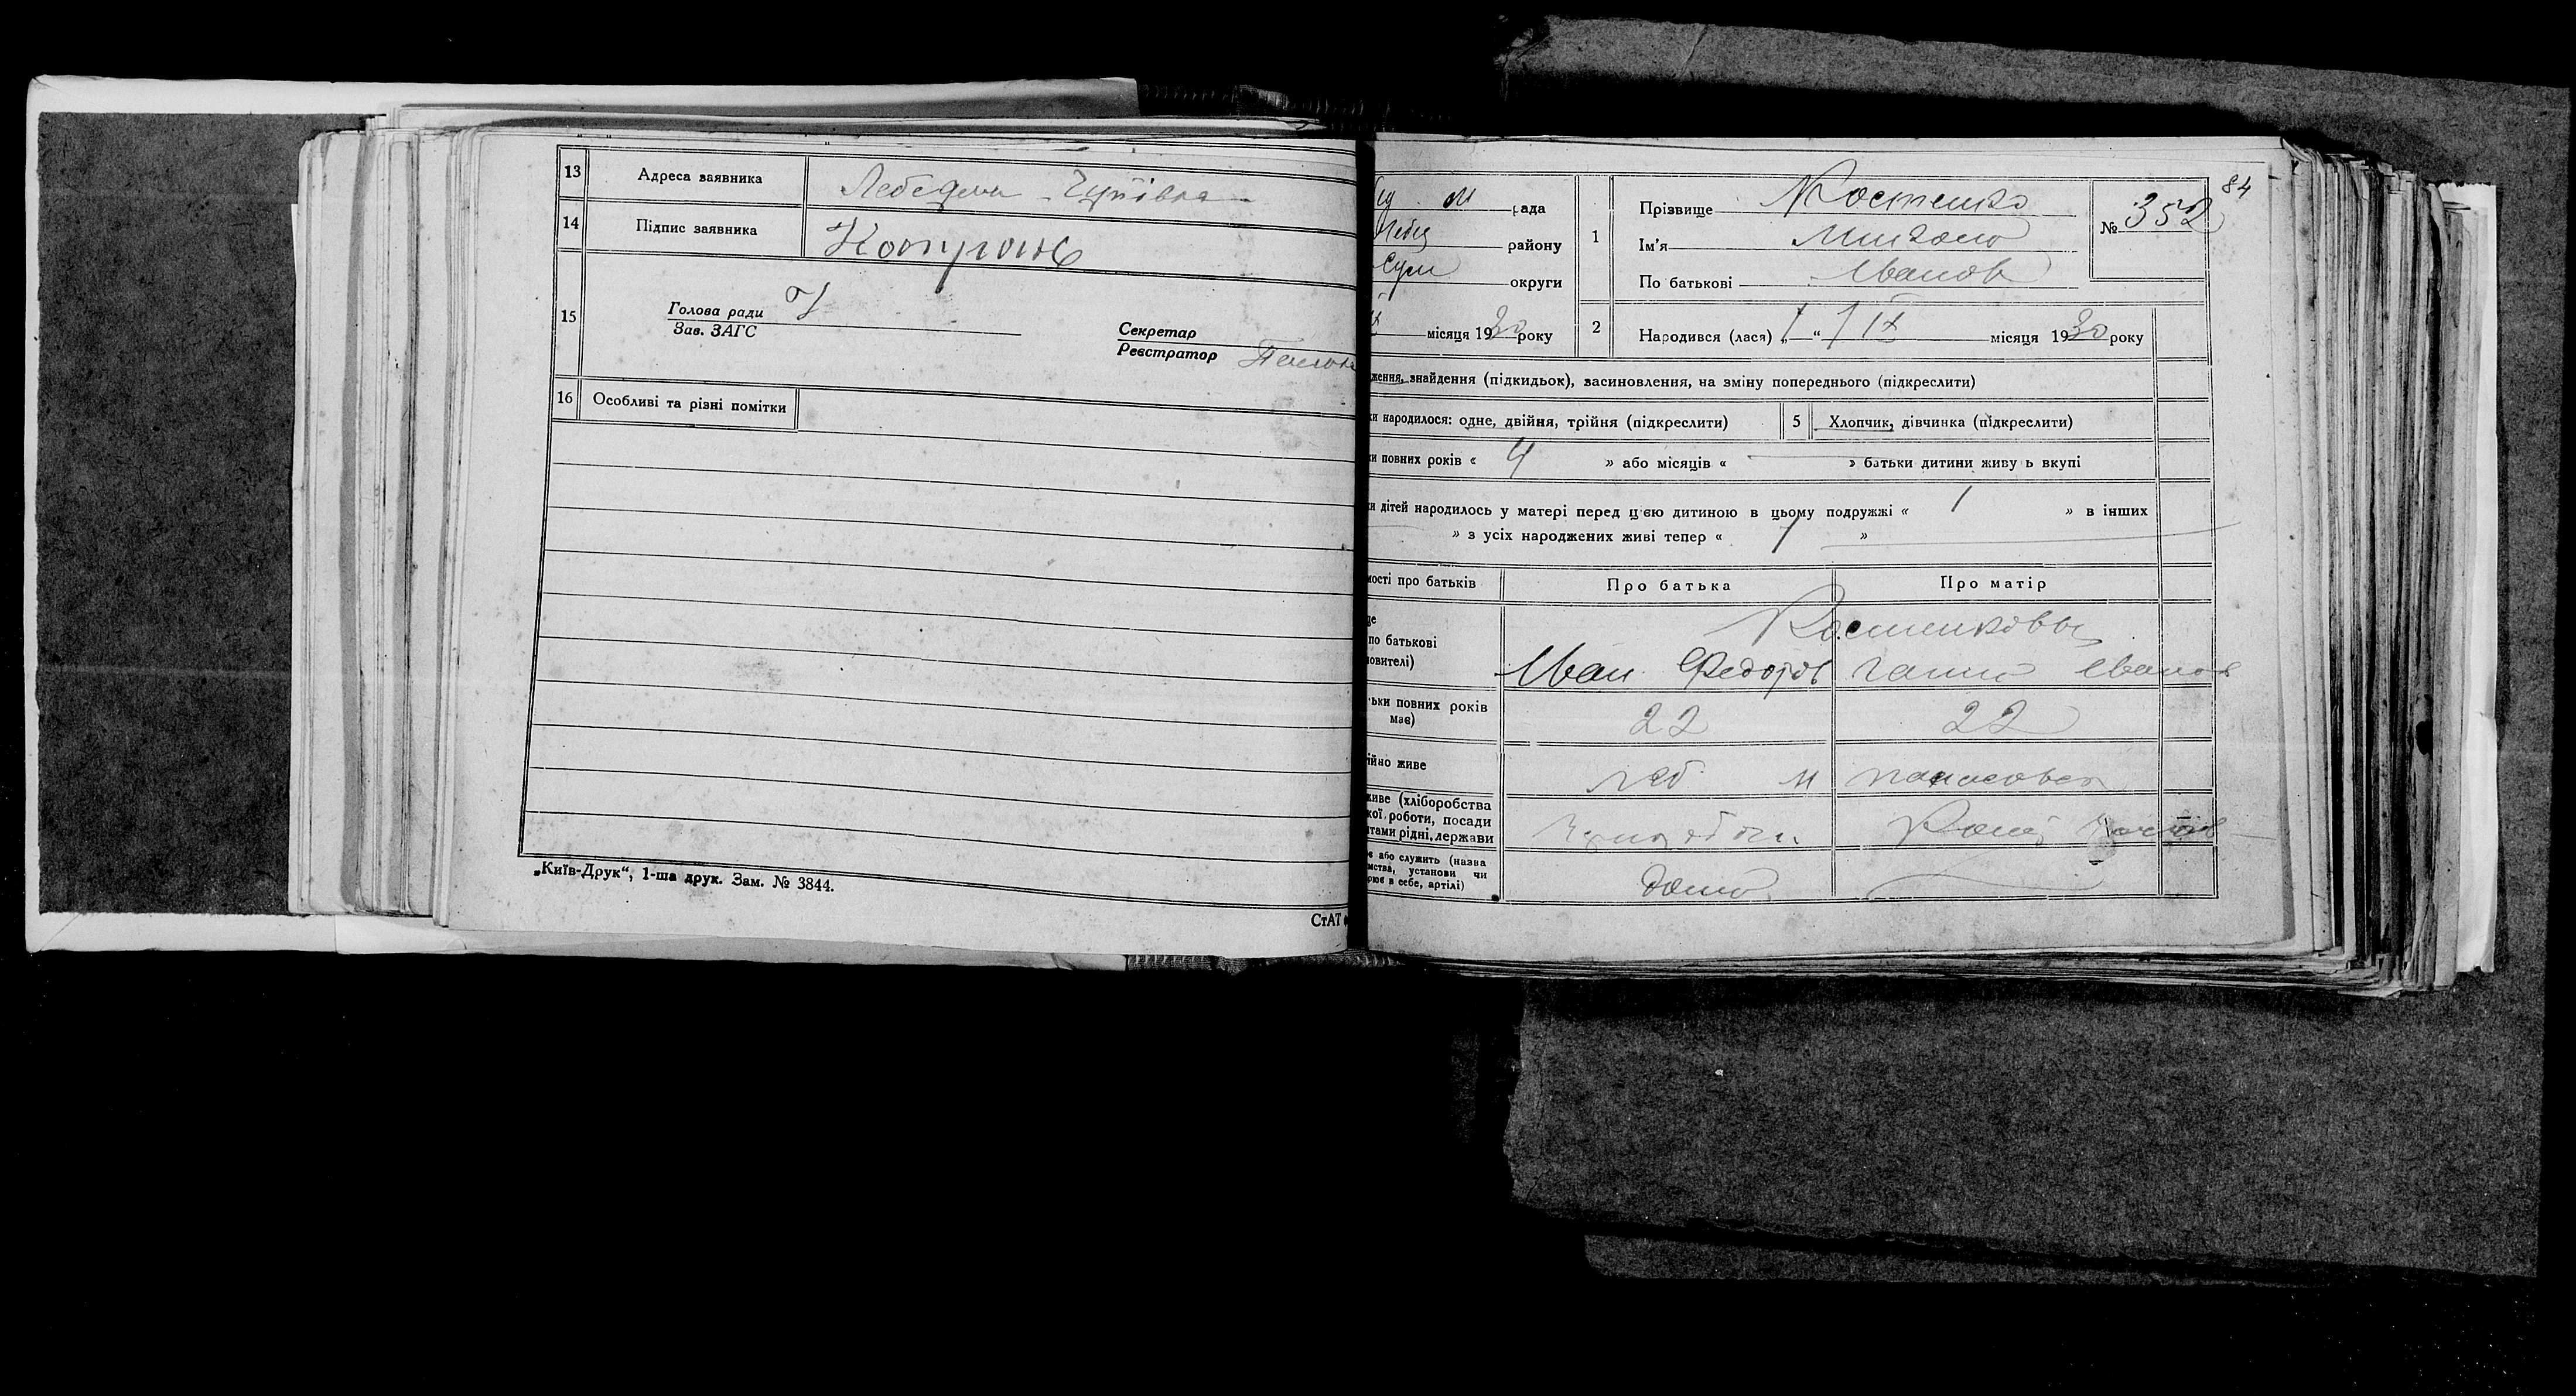 13 Адреса заявника Лебедин
14 Підпис заявника
15 Голова ради
Зав. ЗАГС
Секретар
Реєстратор
16 Особливі та різні помітки
„Київ-Друк“, 1-ша друк. Зам. № 3844.
СтАТ
84
М рада
району
округи
місяця 1930 року
1 Прізвище Костенко
Ім'я
По батькові Иванов
№ 352
2 Народився (лася) „ “ 1 IX місяця 1930 року
ження, знайдення (підкидьок), васиновлення, на зміну попереднього (підкреслити)
ки народилося: одне, двійня, трійня (підкреслити) 5 Хлопчик, дівчинка (підкреслити)
ки повних років « 4 » або місяців « » батьки дитини живу ь вкупі
ки дітей народилось у матері перед цією дитиною в цьому подружжі « 1 » в інших
» з усіх народжених живі тепер « 1 »
мості про батьків Про батька Про матір
Костенковы
по батькові
ловителі)
Иван Федоров Ганна Иванов
ьки повних років
має)
22 22
ійно живе
Леб М
живе (хліборобства
кої роботи, посади
тами рідні, держави
є або служить (назва
мства, установи чи
рює в себе, артілі)
дома